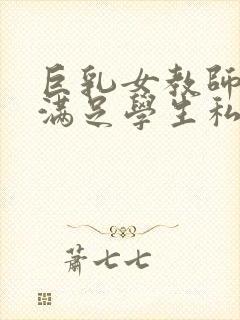 巨乳女教師
滿足學生私
蕭七七